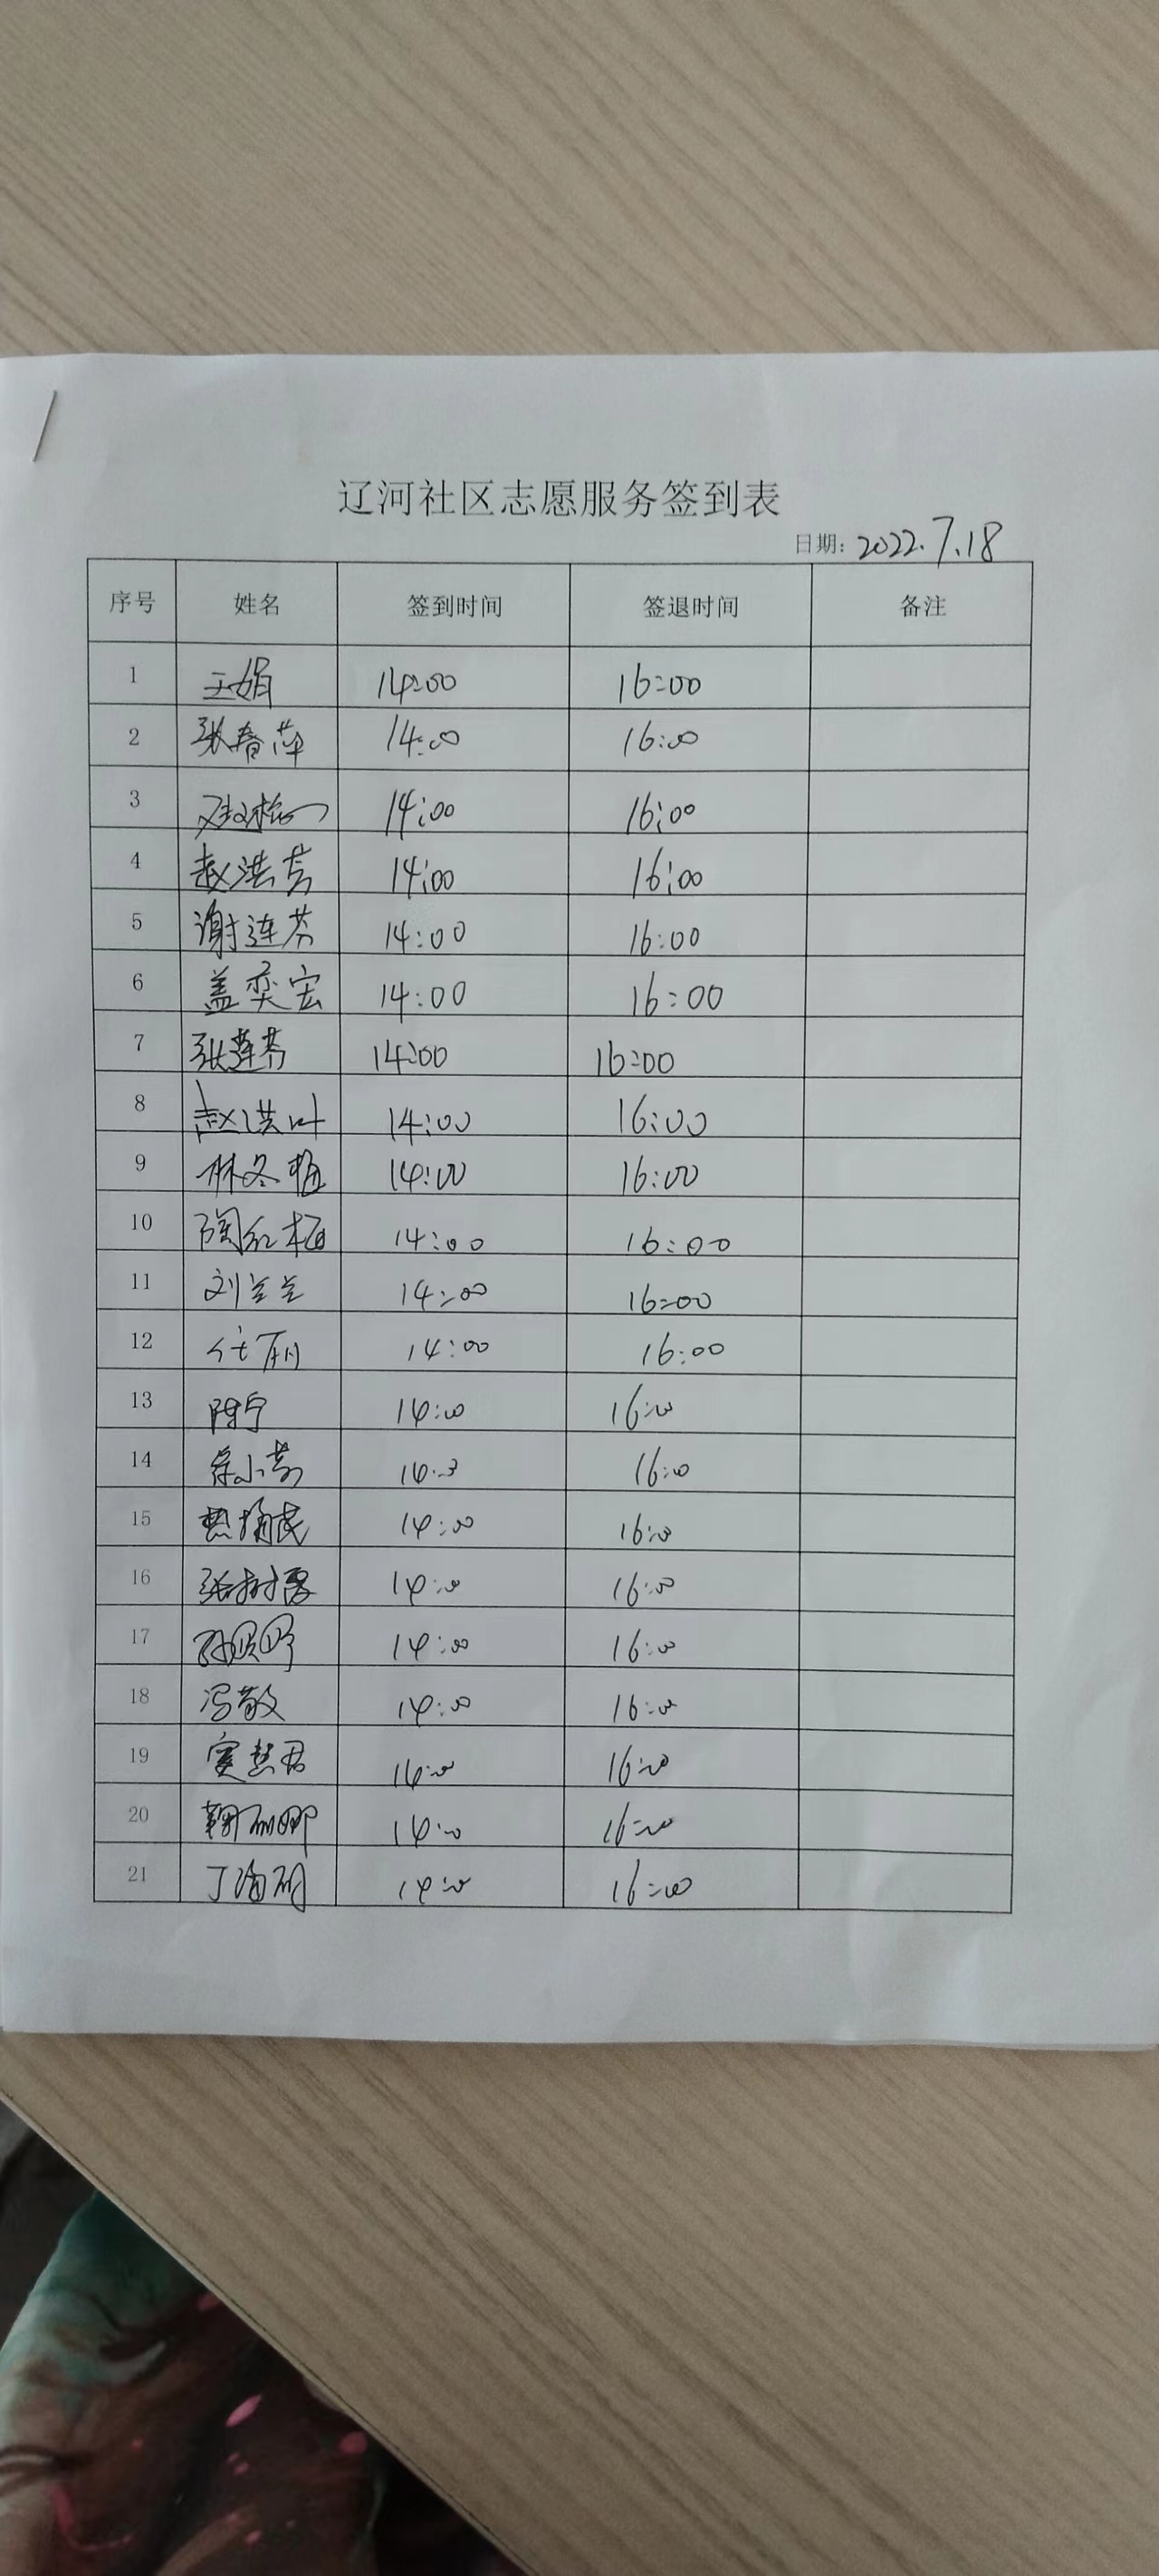 辽河社区志愿服务签到表
日期: 2022.7.18
序号 姓名 签到时间 签退时间 备注
1 王娟 14:00 16:00
2 张春萍 14:00 16:00
3 14:00 16:00
4 赵洪芳 14:00 16:00
5 谢连芬 14:00 16:00
6 盖奕宏 14:00 16:00
7 张莲芬 14:00 16:00
8 赵洪叶 14:00 16:00
9 林冬梅 14:00 16:00
10 陶红梅 14:00 16:00
11 刘兰兰 14:00 16:00
12 14:00 16:00
13 陈宁 14:00 16:00
14 徐小菊 14:00 16:00
15 14:00 16:00
16 14:00 16:00
17 14:00 16:00
18 冯敬 14:00 16:00
19 窦慧君 14:00 16:00
20 鞠丽娜 14:00 16:00
21 丁海丽 14:00 16:00